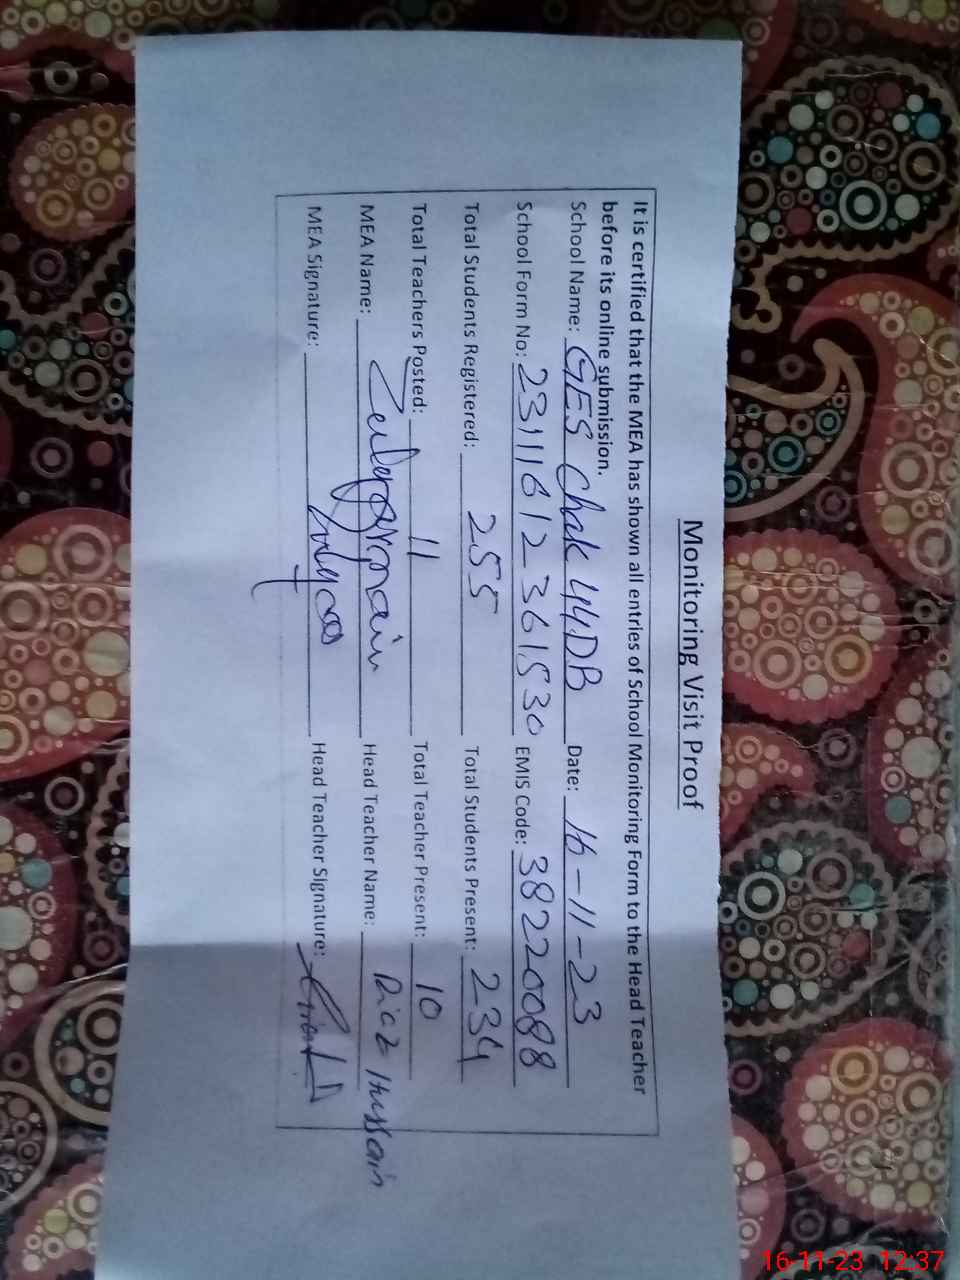 Monitoring Visit Proof
It is certified that the MEA has shown all entries of School Monitoring Form to the Head Teacher
before its online submission.
School Name: GES Chak 44DB Date: 16-11-23
School Form No: 231116 12 361530 EMIS Code: 38220088
Total Students Registered: 255 Total Students Present: 234
Total Teachers Posted: 11 Total Teacher Present: 10
MEA Name: Head Teacher Name: Riaz Hussain
MEA Signature: Head Teacher Signature:
16-11-23 12:37